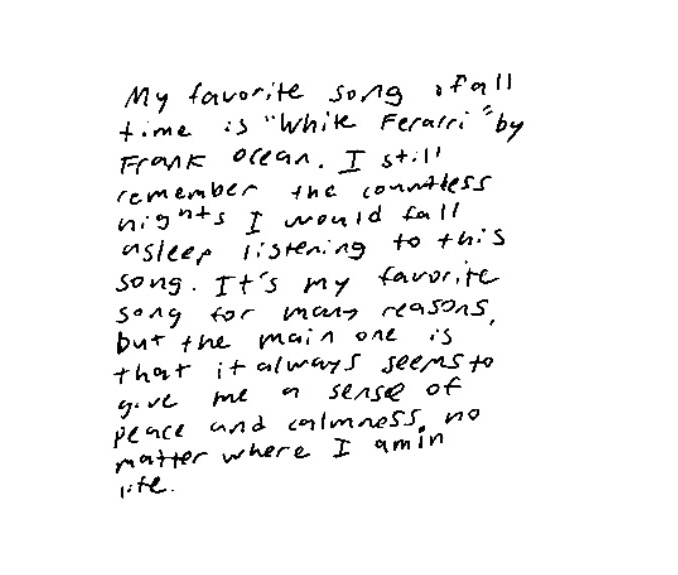 My favorite song of all
time is "White Ferarri" by
Frank Ocean. I still
remember the countless
nights I would fall
asleep listening to this
song. It's my favorite
song for many reasons,
but the main one is
that it always seems to
give me a sense of
peace and calmness, no
matter where I am in
life.